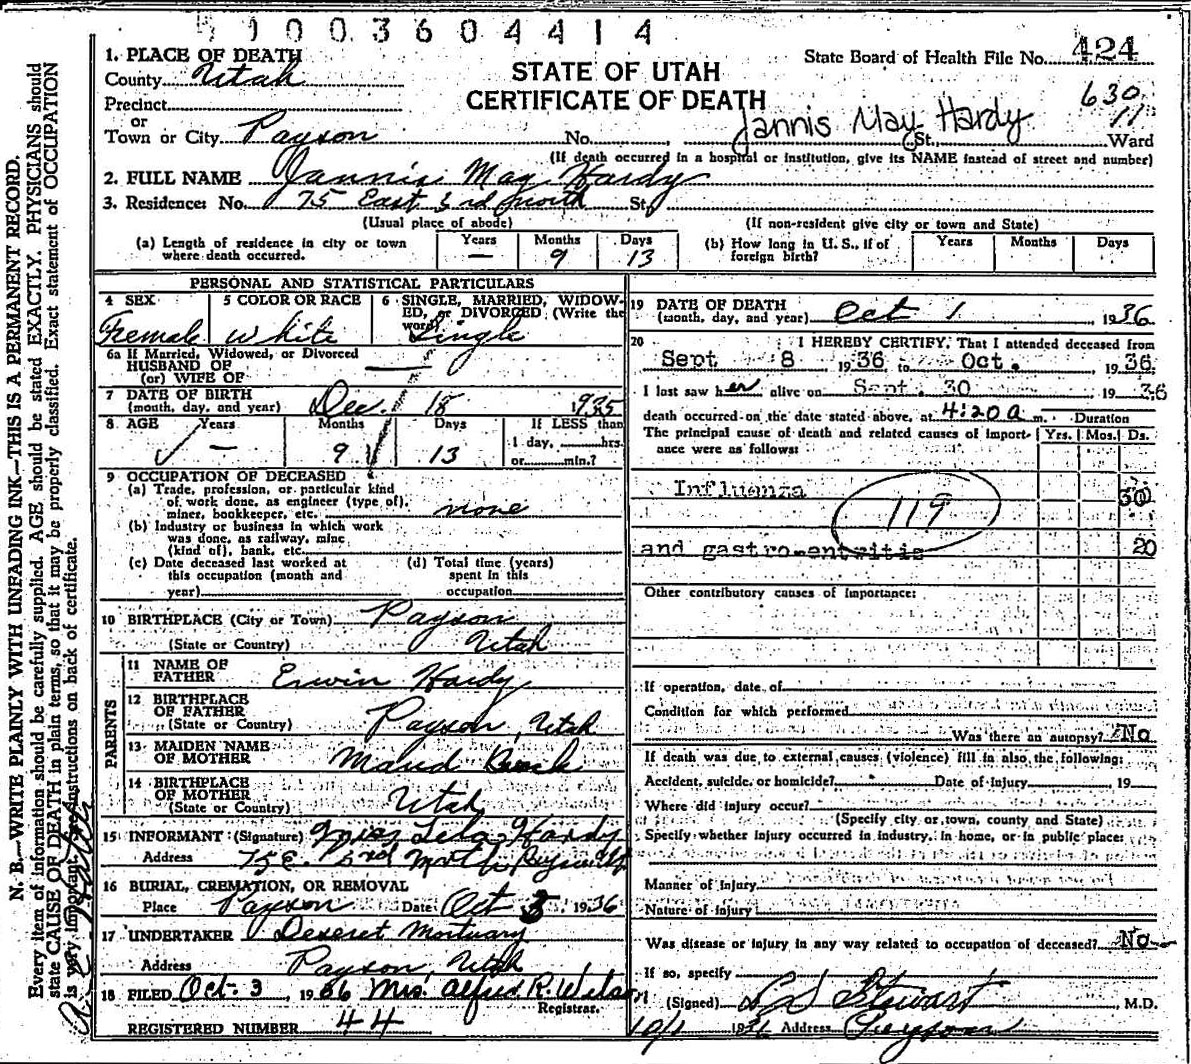 9 1 0 0 3 6 0 4 4 1 4
State Board of Health File No. 424
STATE OF UTAH
CERTIFICATE OF DEATH
630
11
Jannis May Hardy
1. PLACE OF DEATH
County Utah
Precinct
or
Town or City Payson No. , St., Ward
(If death occurred in a hospital or institution, give its NAME instead of street and number)
2. FULL NAME Jannis May Hardy
3. Residence: No. 75 East 3rd North St.
(Usual place of abode) (If non-resident give city or town and State)
(a) Length of residence in city or town where death occurred. Years — Months 9 Days 13
(b) How long in U. S., if of foreign birth? Years Months Days
PERSONAL AND STATISTICAL PARTICULARS
4 SEX Female
5 COLOR OR RACE White
6 SINGLE, MARRIED, WIDOWED, or DIVORCED (Write the word) Single
6a If Married, Widowed, or Divorced
HUSBAND OF
(or) WIFE OF —
7 DATE OF BIRTH
(month, day, and year) Dec. 18 1935
8 AGE Years — Months 9 Days 13 If LESS than
1 day, hrs.
or min.?
9 OCCUPATION OF DECEASED
(a) Trade, profession, or particular kind
of work done, as engineer (type of),
miner, bookkeeper, etc. none
(b) Industry or business in which work
was done, as railway, mine
(kind of), bank, etc.
(c) Date deceased last worked at
this occupation (month and
year)
(d) Total time (years)
spent in this
occupation
10 BIRTHPLACE (City or Town) Payson
(State or Country) Utah
PARENTS
11 NAME OF
FATHER Erwin Hardy
12 BIRTHPLACE
OF FATHER
(State or Country) Payson, Utah
13 MAIDEN NAME
OF MOTHER Maud
14 BIRTHPLACE
OF MOTHER
(State or Country) Utah
15 INFORMANT (Signature) Miss Lela Hardy
Address 75 E. 3rd North, Payson Ut
16 BURIAL, CREMATION, OR REMOVAL
Place Payson Date Oct 3, 1936
17 UNDERTAKER Deseret Mortuary
Address Payson, Utah
18 FILED Oct. 3, 1936 Mrs. Alfred R. Wilson
Registrar.
REGISTERED NUMBER 44
19 DATE OF DEATH
(month, day, and year) Oct 1, 1936
20 I HEREBY CERTIFY, That I attended deceased from
Sept 8, 1936 to Oct. , 1936
I last saw her alive on Sept. 30 1936
death occurred on the date stated above, at 4:20 a m. Duration
The principal cause of death and related causes of importance were as follows: Yrs. Mos. Ds.
Influenza 30
119
and gastro-entritis 20
Other contributory causes of importance:
If operation, date of
Condition for which performed
Was there an autopsy? No
If death was due to external causes (violence) fill in also the following:
Accident, suicide, or homicide? Date of injury , 19
Where did injury occur?
(Specify city or town, county and State)
Specify whether injury occurred in industry, in home, or in public place:
Manner of injury
Nature of injury
Was disease or injury in any way related to occupation of deceased? No
If so, specify
(Signed) L D Stewart M.D.
10/1 1936 Address Payson
N. B.—WRITE PLAINLY WITH UNFADING INK—THIS IS A PERMANENT RECORD.
Every item of information should be carefully supplied. AGE should be stated EXACTLY. PHYSICIANS should
state CAUSE OF DEATH in plain terms, so that it may be properly classified. Exact statement of OCCUPATION
is very important. See instructions on back of certificate.